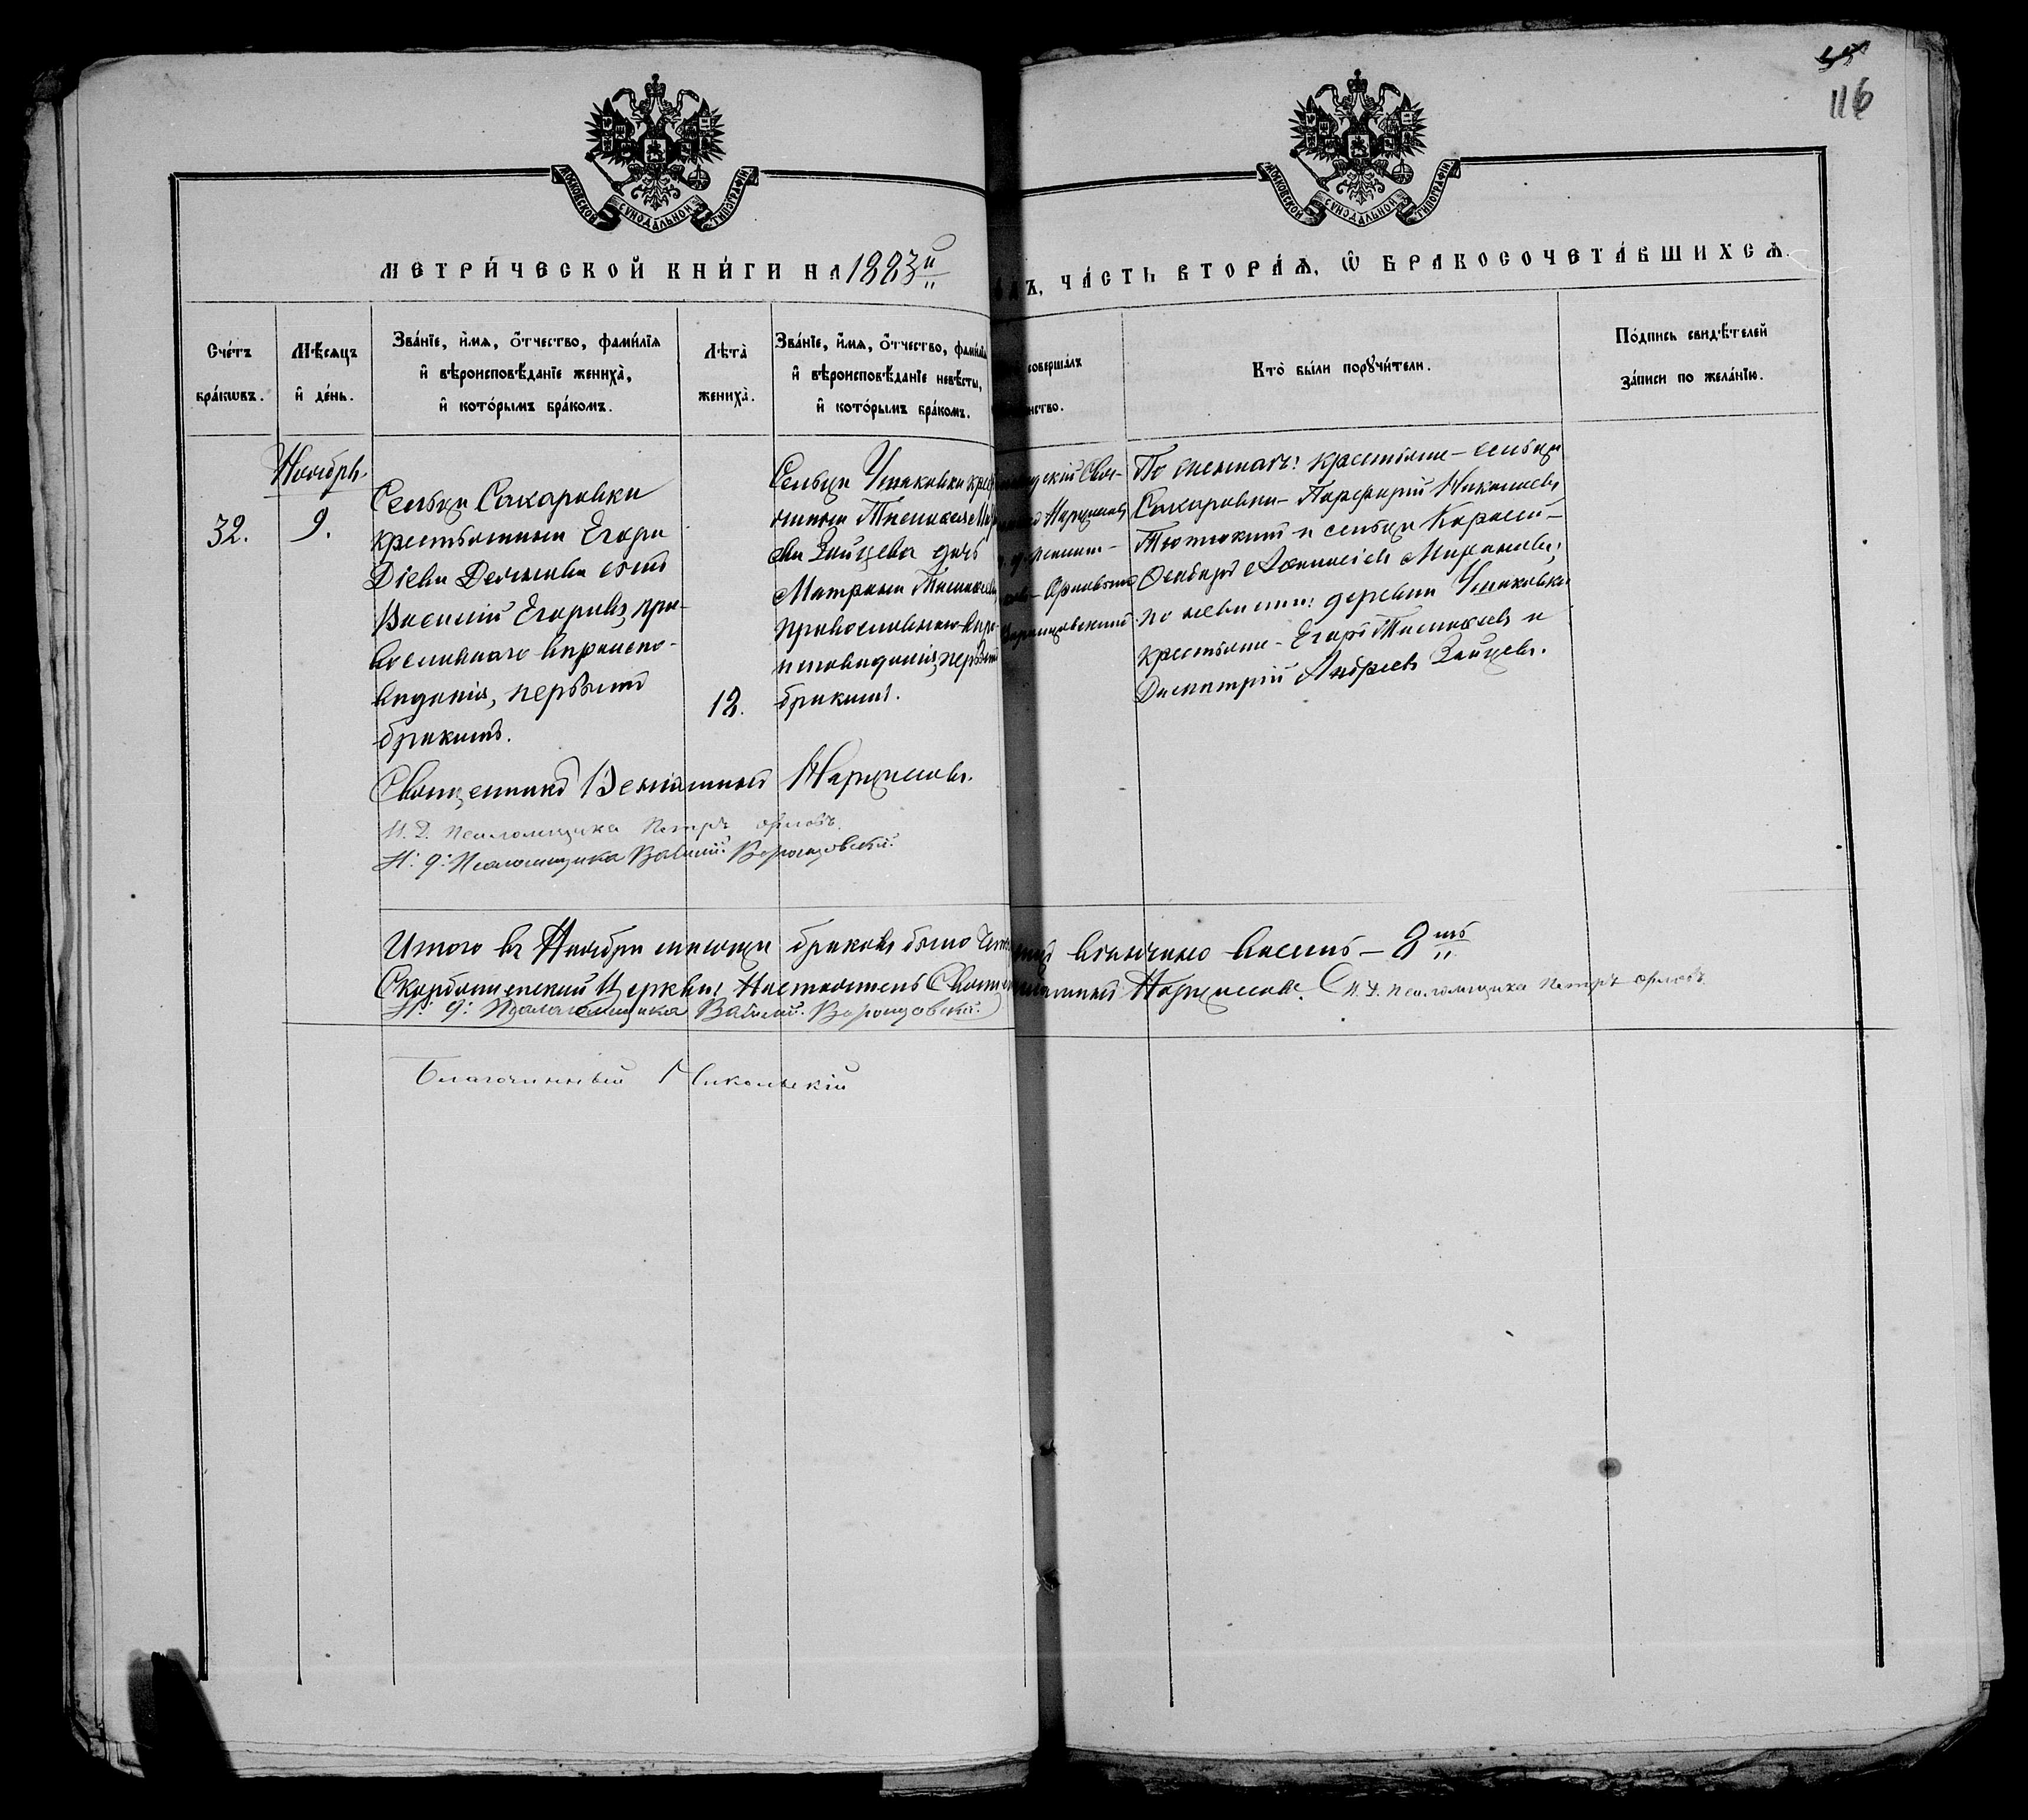 116
МОСКОВСКОЙ СѴНОДАЛЬНОЙ ТИПОГРАФІИ
МОСКОВСКОЙ СѴНОДАЛЬНОЙ ТИПОГРАФІИ
МЕТРИ́ЧЕСКОЙ КНИ́ГИ НА 1883й
ЧА́СТЬ ВТОРА́Ѧ, Ѡ БРАКОСОЧЕТА́ВШИХСѦ.
Сче́тъ бра́кѡвъ.
Мѣ́сяцъ и҆ де́нь.
Зва́нїе, и҆́мя, ѻ҆́тчество, фами́лїя
и҆ вѣроисповѣ́данїе жениха̀,
и҆ кото́рымъ бра́комъ.
Лѣта̀ жениха̀.
Зва́нїе, и҆́мя, ѻ҆́тчество, фами́лїя
и҆ вѣроисповѣ́данїе невѣ́сты,
и҆ кото́рымъ бра́комъ.
соверша́лъ
Кто̀ бы́ли порꙋчи́тели.
По́дпись свидѣ́телей
за́писи по жела́нїю.
Ноябрь.
32.
9.
Сельца Сахаровки
крестьянина Егора
Дiева сынъ
Василій Егоровъ, пра-
вославнаго вѣроиспо-
вѣданія, первымъ
бракомъ.
18.
Сельца Ушаковки
Тимофея
Зайцева дочь
Матрона
православнаго вѣро-
исповѣданія, первымъ
бракомъ.
Нарциссовъ
Орловымъ
Воронцовскій
По женихѣ: крестьяне – сельца
Сахаровки – Порфирій Николаевъ
и сельца
по невѣстѣ: деревни Ушаковки
крестьяне – Егоръ Тимофеевъ и
Димитрій Андреевъ Зайцевъ.
Священникъ Веніаминъ Нарциссовъ.
И. д. псаломщика Петръ Орловъ.
И. д. Псаломщика Василій Воронцовскій.
Итого въ Ноябрѣ мѣсяцѣ браковъ было включено восемь – 8мь
Скорбященской Церкви, Настоятель Нарциссовъ. И. д. псаломщика Петръ Орловъ.
И. д. Псаломщика Василій Воронцовскій.
Благочинный Никольскій